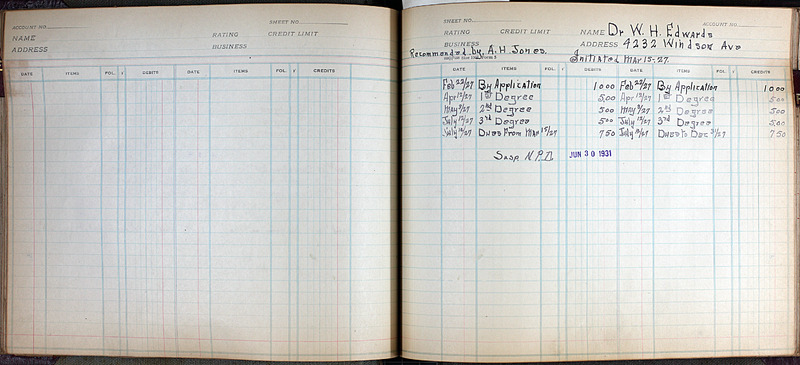 SHEET NO.
ACCOUNT NO.
NAME
RATING CREDIT LIMIT
ADDRESS
BUSINESS
DATE ITEMS FOL. √ DEBITS DATE ITEMS FOL. √ CREDITS
SHEET NO. ACCOUNT NO.
RATING CREDIT LIMIT NAME Dr W. H. Edwards
BUSINESS ADDRESS 4232 Windsor Ave
Recommended by A. H. Jones. Initiated Mar 15-27.
DATE ITEMS FOL. √ DEBITS DATE ITEMS FOL. √ CREDITS
Feb 22/27 By Application 10 00 Feb 22/27 By Application 10 00
Apr 12/27 1st Degree 5 00 Apr 12/27 1st Degree 5 00
May 9/27 2nd Degree 5 00 May 9/27 2nd Degree 5 00
July 12/27 3rd Degree 5 00 July 12/27 3rd Degree 5 00
July 12/27 Dues From Mar 15/27 7 50 July 12/27 Dues to Dec 31/27 7 50
Susp N.P.D. JUN 30 1931